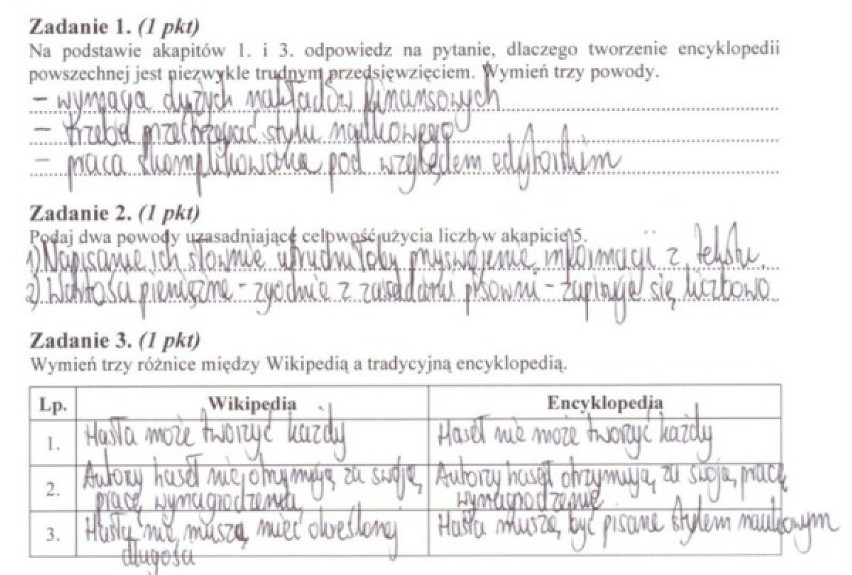 Zadanie 1. (1 pkt)
Na podstawie akapitów 1. i 3. odpowiedz na pytanie, dlaczego tworzenie encyklopedii
powszechnej jest niezwykle trudnym przedsięwzięciem. Wymień trzy powody.
– wymaga dużych nakładów finansowych
– trzeba przestrzegać stylu naukowego
– praca skomplikowana pod względem edytorskim
Zadanie 2. (1 pkt)
Podaj dwa powody uzasadniające celowość użycia liczb w akapicie 5.
1) Napisanie ich słownie utrudniłoby przyswojenie informacji z tekstu.
2) Wartości pieniężne - zgodnie z zasadami pisowni - zapisuje się liczbowo
Zadanie 3. (1 pkt)
Wymień trzy różnice między Wikipedią a tradycyjną encyklopedią.
Lp. Wikipedia Encyklopedia
1. Hasła może tworzyć każdy Haseł nie może tworzyć każdy
2. Autorzy haseł nie otrzymują za swoją Autorzy haseł otrzymują za swoją pracę
pracę wynagrodzenia wynagrodzenie
3. Hasła nie muszą mieć określonej Hasła muszą być pisane stylem naukowym
długości